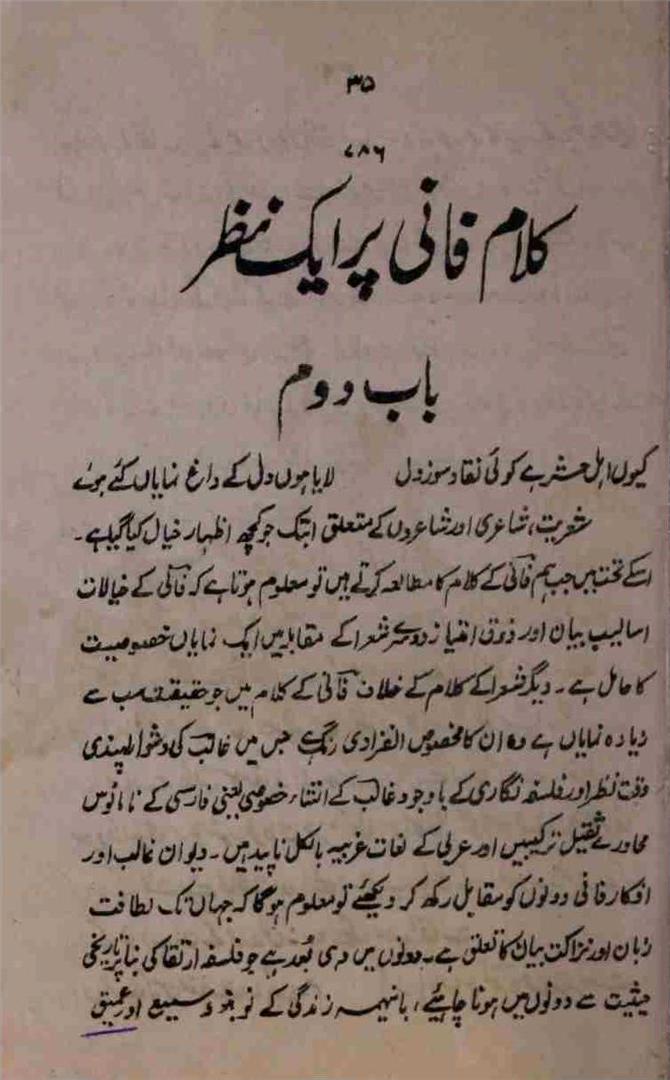 ۳۵
۷۸۶
کلام فانی پر ایک نظر
باب دوم
کیوں اہل حشر ہے کوئی نقاد سوز دل لایا ہوں دل کے داغ نمایاں کئے ہوئے
شعریت، شاعری اور شاعروں کے متعلق ابتک جو کچھ اظہار خیال کیا گیا ہے۔
اسکے تحت میں جب ہم فانی کے کلام کا مطالعہ کرتے ہیں تو معلوم ہوتا ہے کہ فانی کے خیالات
اسالیب بیان اور ذوق امتیاز دوسرے شعرا کے مقابلہ میں ایک نمایاں خصوصیت
کا حامل ہے۔ دیگر شعرا کے کلام کے خلاف فانی کے کلام میں جو حقیقت سب سے
زیادہ نمایاں ہے وہ ان کا مخصوص انفرادی رنگ ہے جس میں غالب کی دشوار پسندی
دقت نظر اور فلسفہ نگاری کے باوجود غالب کے انشاء خصوصی یعنی فارسی کے نامانوس
محاورے ثقیل ترکیبیں اور عربی کے لغات غریبہ بالکل ناپید ہیں۔ دیوان غالب اور
افکار فانی دونوں کو مقابل رکھ کر دیکھئے تو معلوم ہوگا کہ جہاں تک لطافت
زبان اور نزاکت بیان کا تعلق ہے۔ دونوں میں وہی بُعد ہے جو فلسفہ ارتقا کی بنا پر تاریخی
حیثیت سے دونوں میں ہونا چاہیئے، بانہیمہ زندگی کے نو بنو وسیع اور عمیق